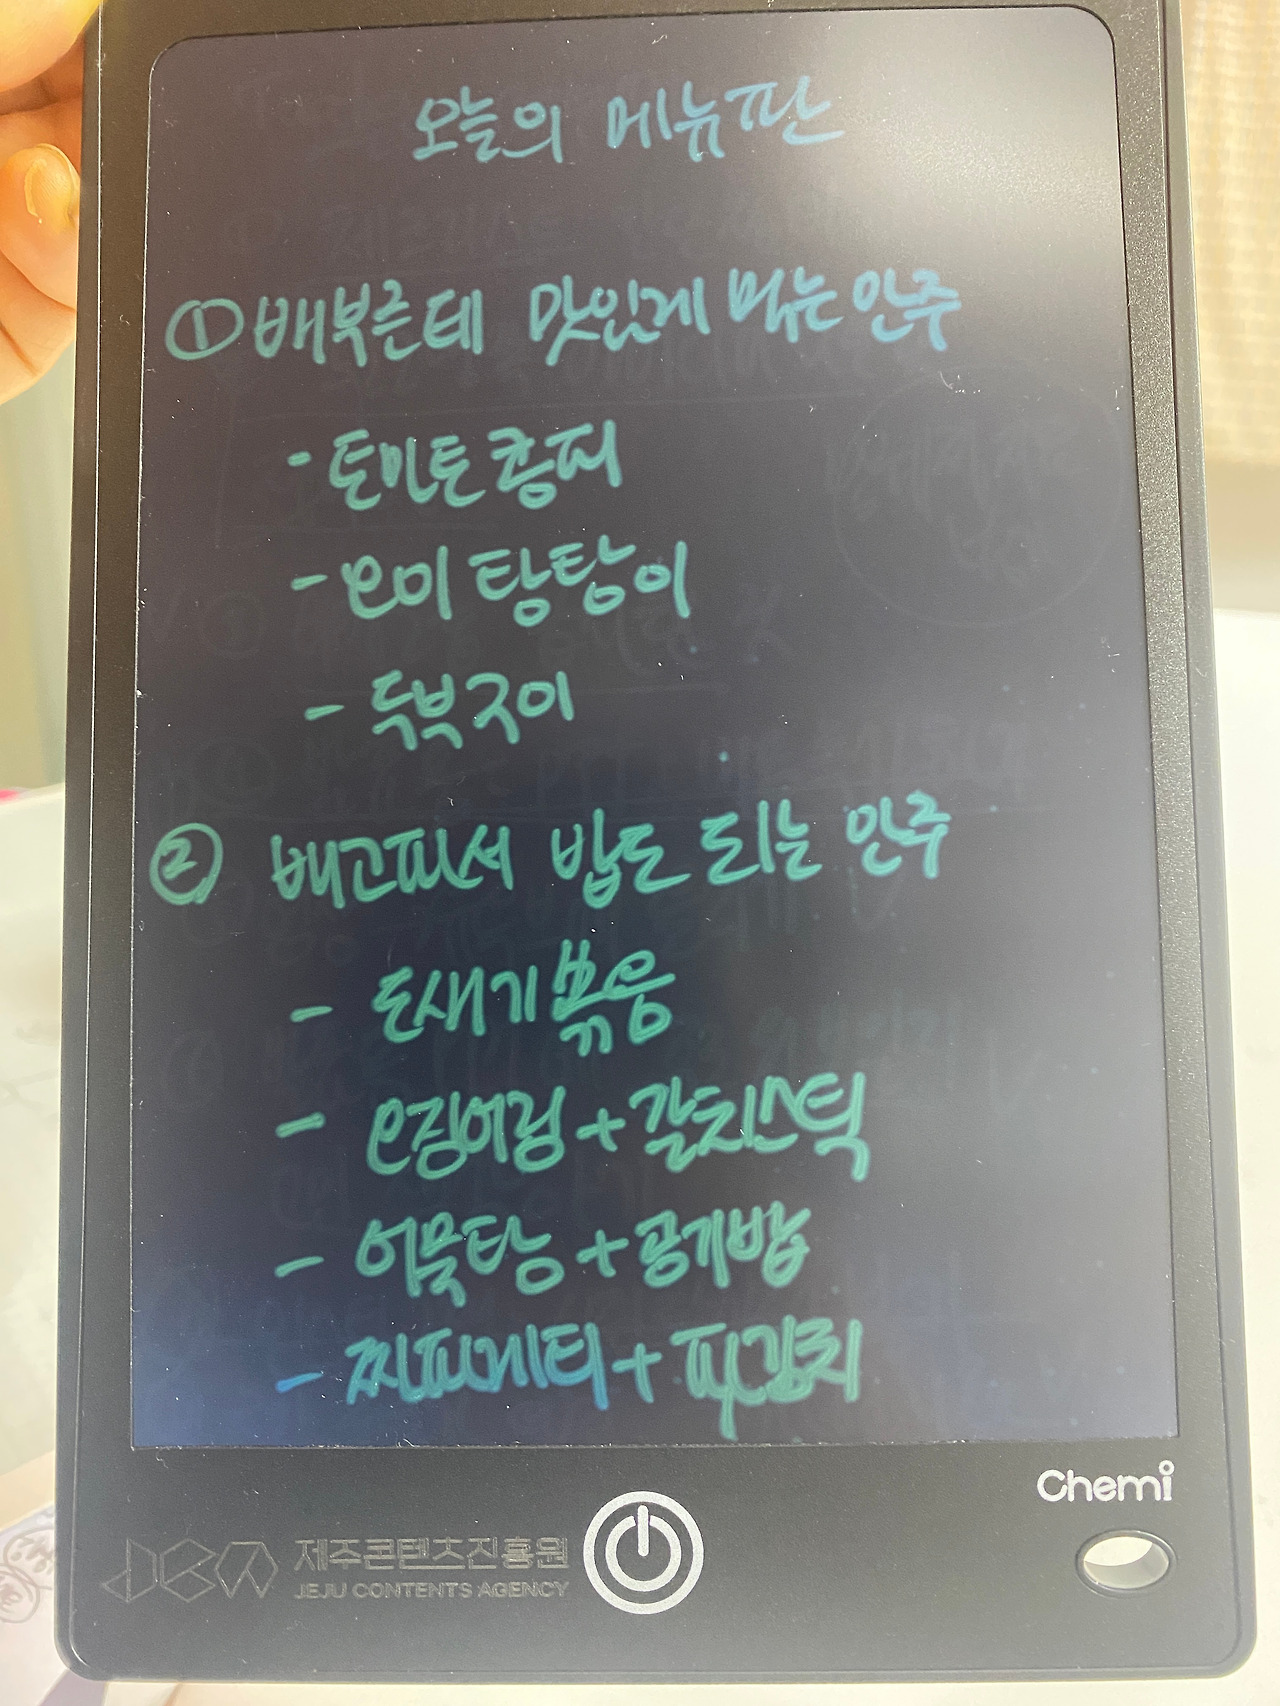 오늘의 메뉴판
① 배부른데 맛있게 먹는 안주
- 토마토 콩피
- 오이 탕탕이
- 두부구이
② 배고파서 밥도 되는 안주
- 돈새기볶음
- 오징어링 + 갈치스틱
- 어묵탕 + 공기밥
- 찌파게티 + 파김치
Chemi
제주콘텐츠진흥원
JEJU CONTENTS AGENCY